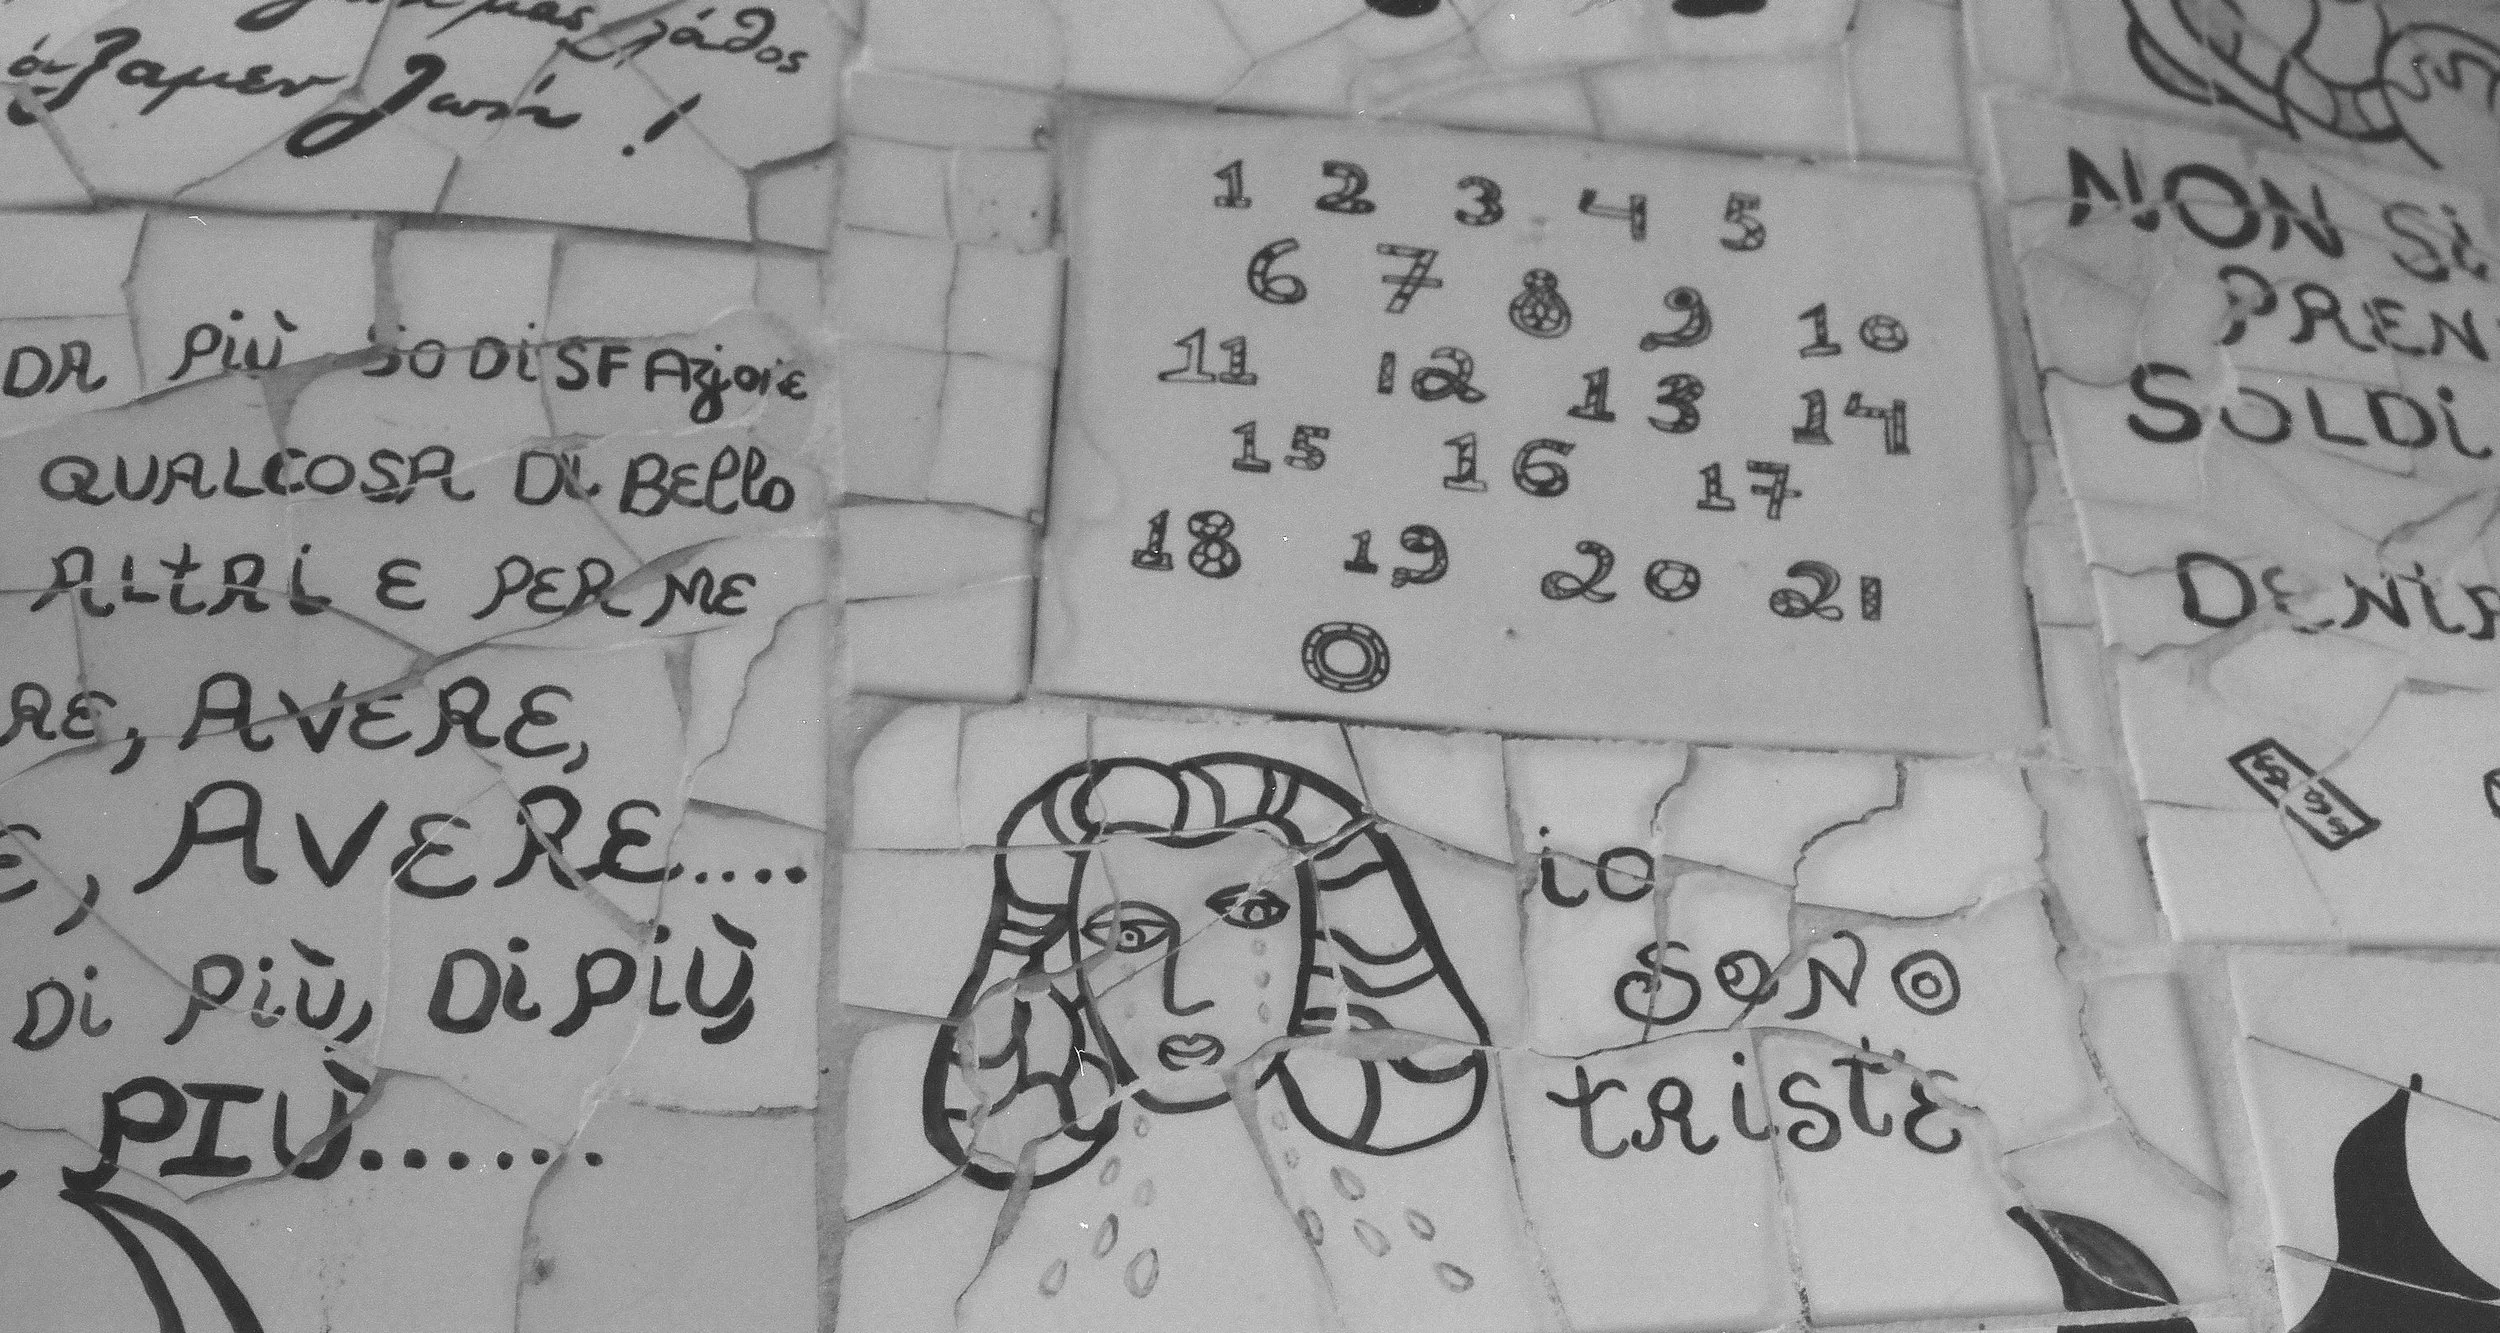 λάθος
άλλαξαμεν ζωή!
DA PIÙ SODISFAZIOIE
QUALCOSA DI BELLO
ALTRI E PER ME
RE, AVERE,
E, AVERE....
DI PIÙ, DI PIÙ,
PIÙ......
1 2 3 4 5
6 7 8 9 10
11 12 13 14
15 16 17
18 19 20 21
0
io
SONO
tRiStE
NON Si
PREN
SOLDi
DENiA
$ $ $